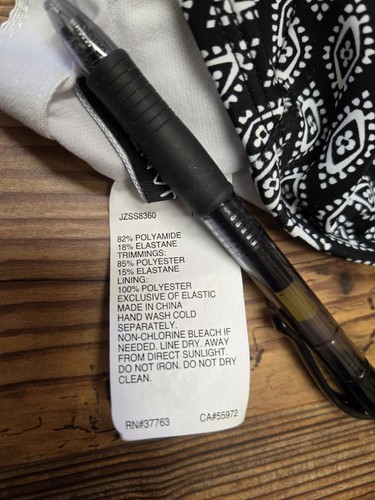 JZSS8360
82% POLYAMIDE
18% ELASTANE
TRIMMINGS:
85% POLYESTER
15% ELASTANE
LINING:
100% POLYESTER
EXCLUSIVE OF ELASTIC
MADE IN CHINA
HAND WASH COLD
SEPARATELY.
NON-CHLORINE BLEACH IF
NEEDED. LINE DRY. AWAY
FROM DIRECT SUNLIGHT.
DO NOT IRON. DO NOT DRY
CLEAN.
RN#37763 CA#55972